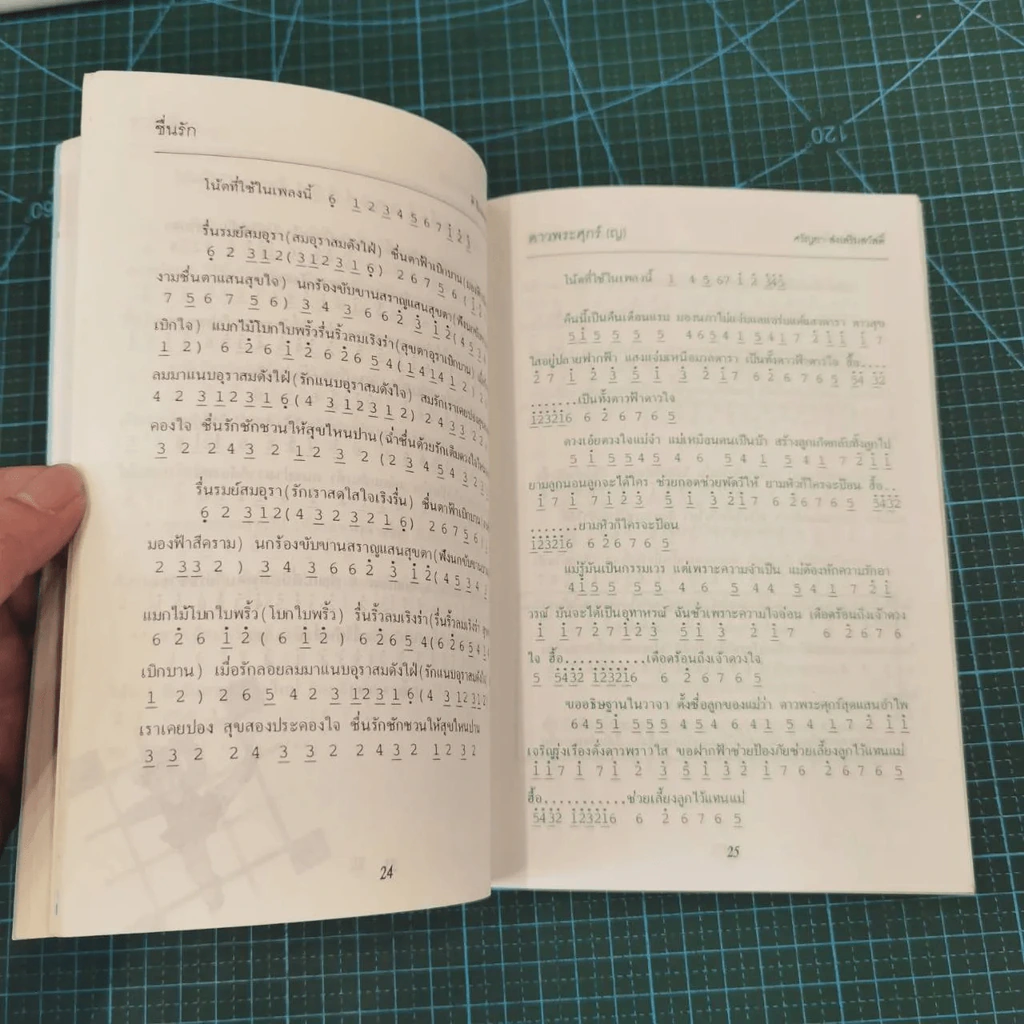 ชื่นรัก
โน้ตที่ใช้ในเพลงนี้ 6̣ 1 2 3 4 5 6 7 1̇ 2̇ 3̇
รื่นรมย์สมอุรา(สมอุราสมดังใฝ่) ชื่นตาฟ้าเบิกบาน(มอง
6̣ 2 3 1 2 ( 3 1 2 3 1 6̣ ) 2 6 7 5 6 ( 1̇
งามชื่นตาแสนสุขใจ) นกร้องขับขานสราญแสนสุขตา(ฟังนก
7 5 6 7 5 6 ) 3 4 3 6 6 2̇ 3̇ 1̇ 2̇ ( 4 5 3
เบิกใจ) แมกไม้โบกใบพริ้วรื่นริ้วลมเริงร่า(สุขตาอุราเบิกบาน)
1 2 ) 6 2̇ 6 1̇ 2̇ 6 2̇ 6 5 4 ( 1 4 1 4 1 2 ) 2
ลมมาแนบอุราสมดังใฝ่(รักแนบอุราสมดังใจ) สมรักเราเคย
4 2 3 1 2 3 1 6̣ ( 4 3 1 2 3 1 2 ) 2 4 3 3
คองใจ ชื่นรักชักชวนให้สุขไหนปาน (ฉ่ำชื่นด้วยรักเต็มดวงใจ
3 2 2 4 3 2 1 2 3 2 ( 2 3 4 5 4 3 2
รื่นรมย์สมอุรา(รักเราสดใสใจเริงรื่น) ชื่นตาฟ้าเบิกบาน
6̣ 2 3 1 2 ( 4 3 2 3 2 1 6̣ ) 2 6 7 5 6
มองฟ้าสีคราม) นกร้องขับขานสราญแสนสุขตา(ฟังนกขับขาน
2 3 3 2 ) 3 4 3 6 6 2̇ 3̇ 1̇ 2̇ ( 4 5 3 4
แมกไม้โบกใบพริ้ว(โบกใบพริ้ว) รื่นริ้วลมเริงร่า(รื่นริ้วลมเริงร่า
6 2̇ 6 1̇ 2̇ ( 6 1̇ 2̇ ) 6 2̇ 6 5 4 ( 6 2̇ 6 5 4
เบิกบาน) เมื่อรักลอยลมมาแนบอุราสมดังใฝ่(รักแนบอุราสมดังใจ
1 2 ) 2 6 5 4 2 3 1 2 3 1 6̣ ( 4 3 1 2 3 1 2
เราเคยปอง สุขสองประคองใจ ชื่นรักชักชวนให้สุขไหนปาน
3 3 2 2 4 3 3 2 2 4 3 2 1 2 3 2
24
ดาวพระศุกร์ (ญ)
โน้ตที่ใช้ในเพลงนี้ 1 4 5 6 7 1̇ 2̇ 3̇ 4̇ 5̇
คืนนี้เป็นคืนเดือนแรม
5 1̇ 5 5 5 5 4 6 5 4 1 5 4 1 7 1̇ 1̇ 1̇ 7
ใสอยู่ปลายฟากฟ้า แสงแจ่มเหนือมวลดารา เป็นทั้งดาวฟ้าดาวใจ ฮื้อ....
2̇ 7 1̇ 2̇ 3̇ 5̇ 1̇ 3̇ 2̇ 1̇ 7 6 2̇ 6 7 6 5 5̇4̇ 3̇2̇
.......เป็นทั้งดาวฟ้าดาวใจ
1̇2̇3̇2̇1̇6 6 2̇ 6 7 6 5
ดวงเอ๋ยดวงใจแม่จ๋า แม่เหมือนคนเป็นบ้า สร้างลูกเกิดกลับทิ้งลูกไป
5 1̇ 5 5 4 5 4 6 5 4 1 5 4 1 7 2̇ 1̇ 1̇
ยามลูกนอนลูกจะได้ใคร ช่วยกอดช่วยพัดวีให้ ยามหิวก็ใครจะป้อน ฮื้อ..
1̇ 7 1̇ 7 1̇ 2̇ 3̇ 5̇ 1̇ 3̇ 2̇ 1̇ 7 6 2̇ 6 7 6 5 5̇4̇3̇2̇
.......ยามหิวก็ใครจะป้อน
1̇2̇3̇2̇1̇6 6 2̇ 6 7 6 5
แม่รู้มันเป็นกรรมเวร แต่เพราะความจำเป็น แม่ต้องหักความรักอา
4 1̇ 5 5 5 4 6 5 5 4 4 5 4 1 7 2̇ 1̇
วรณ์ มันจะได้เป็นอุทาหรณ์ ฉันชั่วเพราะความใจอ่อน เดือดร้อนถึงเจ้าดวง
1̇ 1̇ 7 2̇ 7 1̇ 2̇ 3̇ 5̇ 1̇ 3̇ 2̇ 1̇ 7 6 2̇ 6 7 6
ใจ ฮื้อ...........เดือดร้อนถึงเจ้าดวงใจ
5 5̇4̇3̇2̇ 1̇2̇3̇2̇1̇6 6 2̇ 6 7 6 5
ขออธิษฐานในวาจา ตั้งชื่อลูกของแม่ว่า ดาวพระศุกร์สุดแสนอำไพ
6 4 5 1̇ 5 5 5 4 5 4 6 4 1 5 4 1 7 2̇ 1̇ 1̇
เจริญรุ่งเรืองดั่งดาวพราวใส ขอฝากฟ้าช่วยป้องภัยช่วยเลี้ยงลูกไว้แทนแม่
1̇ 1̇ 7 1̇ 7 1̇ 2̇ 3̇ 5̇ 1̇ 3̇ 2̇ 1̇ 7 6 2̇ 6 7 6 5
ฮื้อ...........ช่วยเลี้ยงลูกไว้แทนแม่
5̇4̇3̇2̇ 1̇2̇3̇2̇1̇6 6 2̇ 6 7 6 5
25
120